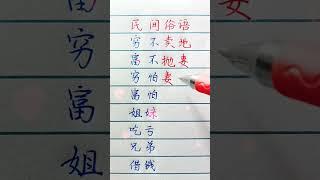 民间俗语
穷不卖地
富不抛妻
穷怕妻
富怕
姐妹
吃亏
兄弟
借钱
姐